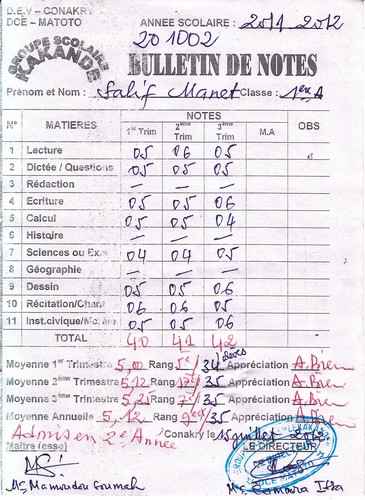 D.E.V – CONAKRY
DCE – MATOTO
ANNEE SCOLAIRE : 2011 2012
201002
GROUPE SCOLAIRE
KAKANDE
BULLETIN DE NOTES
Prénom et Nom : Salif Manet Classe : 1ère A
N° MATIERES NOTES OBS
1er Trim 2ème Trim 3ème Trim M.A
1 Lecture 05 06 05
2 Dictée / Questions 05 05 05
3 Rédaction – – –
4 Ecriture 05 05 06
5 Calcul 05 05 04
6 Histoire – – –
7 Sciences ou Ex.s 04 04 05
8 Géographie – – –
9 Dessin 05 05 06
10 Récitation/Chant 06 06 05
11 Inst.civique/Morale 05 05 06
TOTAL 40 41 42
Moyenne 1er Trimestre 5,00 Rang 5e/34 élèves Appréciation A.Bien
Moyenne 2ème Trimestre 5,12 Rang 17e/35 Appréciation A.Bien
Moyenne 3ème Trimestre 5,25 Rang 17e/35 Appréciation A.Bien
Moyenne Annuelle 5,12 Rang 9ex/35 Appréciation A.Bien
Admis en 2e Année Conakry le 15 juillet 2012
Maître (esse) LE DIRECTEUR
Mr Mamoudou Soumah Mr Camara Issa